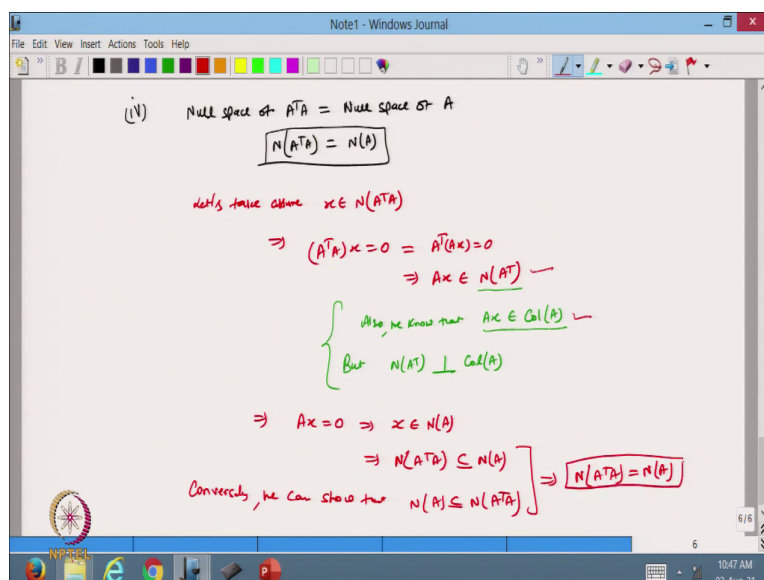 Note1 - Windows Journal
File Edit View Insert Actions Tools Help
B I
(iv) Null space of AᵀA = Null space of A
N(AᵀA) = N(A)
Let's take assume x ∈ N(AᵀA)
⇒ (AᵀA)x = 0 = Aᵀ(Ax) = 0
⇒ Ax ∈ N(Aᵀ)
Also, we know that Ax ∈ Col(A)
But N(Aᵀ) ⊥ Col(A)
⇒ Ax = 0 ⇒ x ∈ N(A)
⇒ N(AᵀA) ⊆ N(A)
⇒ N(AᵀA) = N(A)
Conversely, we can show that N(A) ⊆ N(AᵀA)
6/6
NPTEL
6
10:47 AM